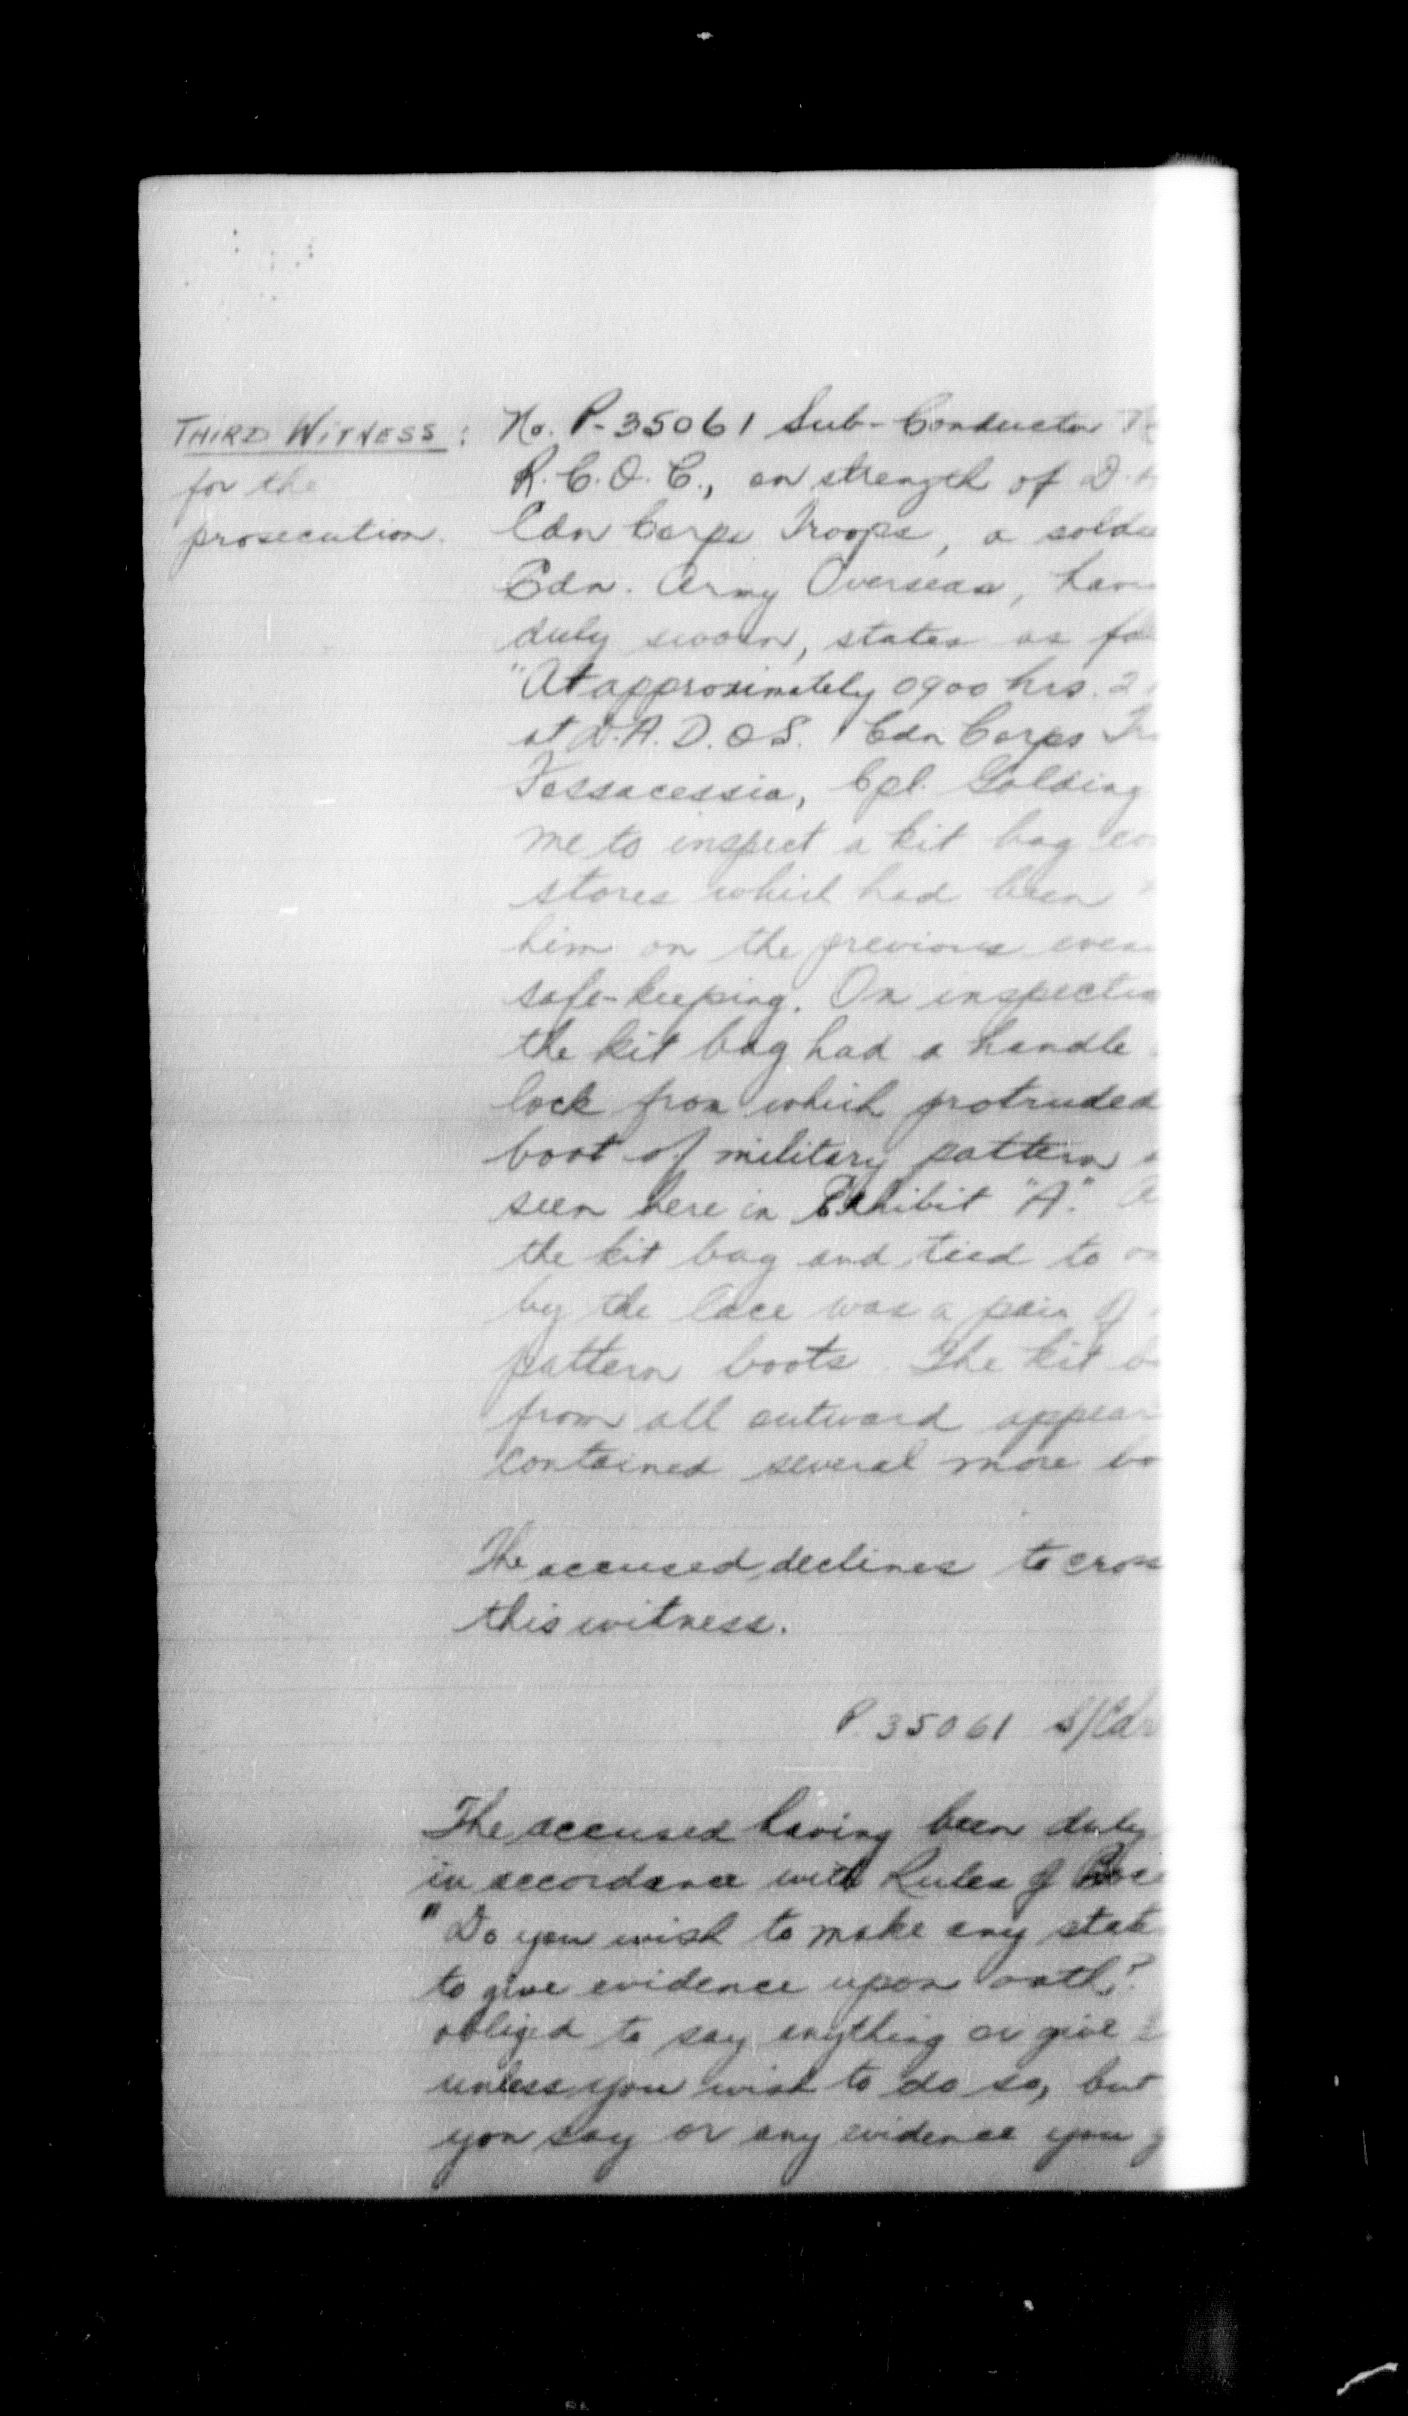 THIRD WITNESS:
for the
prosecution.
No. P-35061 Sub-Conductor
R.C.O.C., on strength of D.
Cdn Corps Troops, a soldie
Cdn. Army Overseas, havi
duly sworn, states as fol
"At approximately 0900 hrs. 2
at D.A.D.O.S. Cdn Corps Tr
Fossacessia, Cpl. Golding
me to inspect a kit bag con
stores which had been
him on the previous eveni
safe-keeping. On inspection
the kit bag had a handle
lock from which protruded
boot of military pattern
seen here in Exhibit "A".
the kit bag and tied to
by the lace was a pair of
pattern boots. The kit b
from all outward appear
contained several more bo
The accused declines to cross
this witness.
P 35061 S/Cdr
The accused having been duly
in accordance with Rules of Proce
"Do you wish to make any state
to give evidence upon oath?
obliged to say anything or give
unless you wish to do so, but
you say or any evidence you g